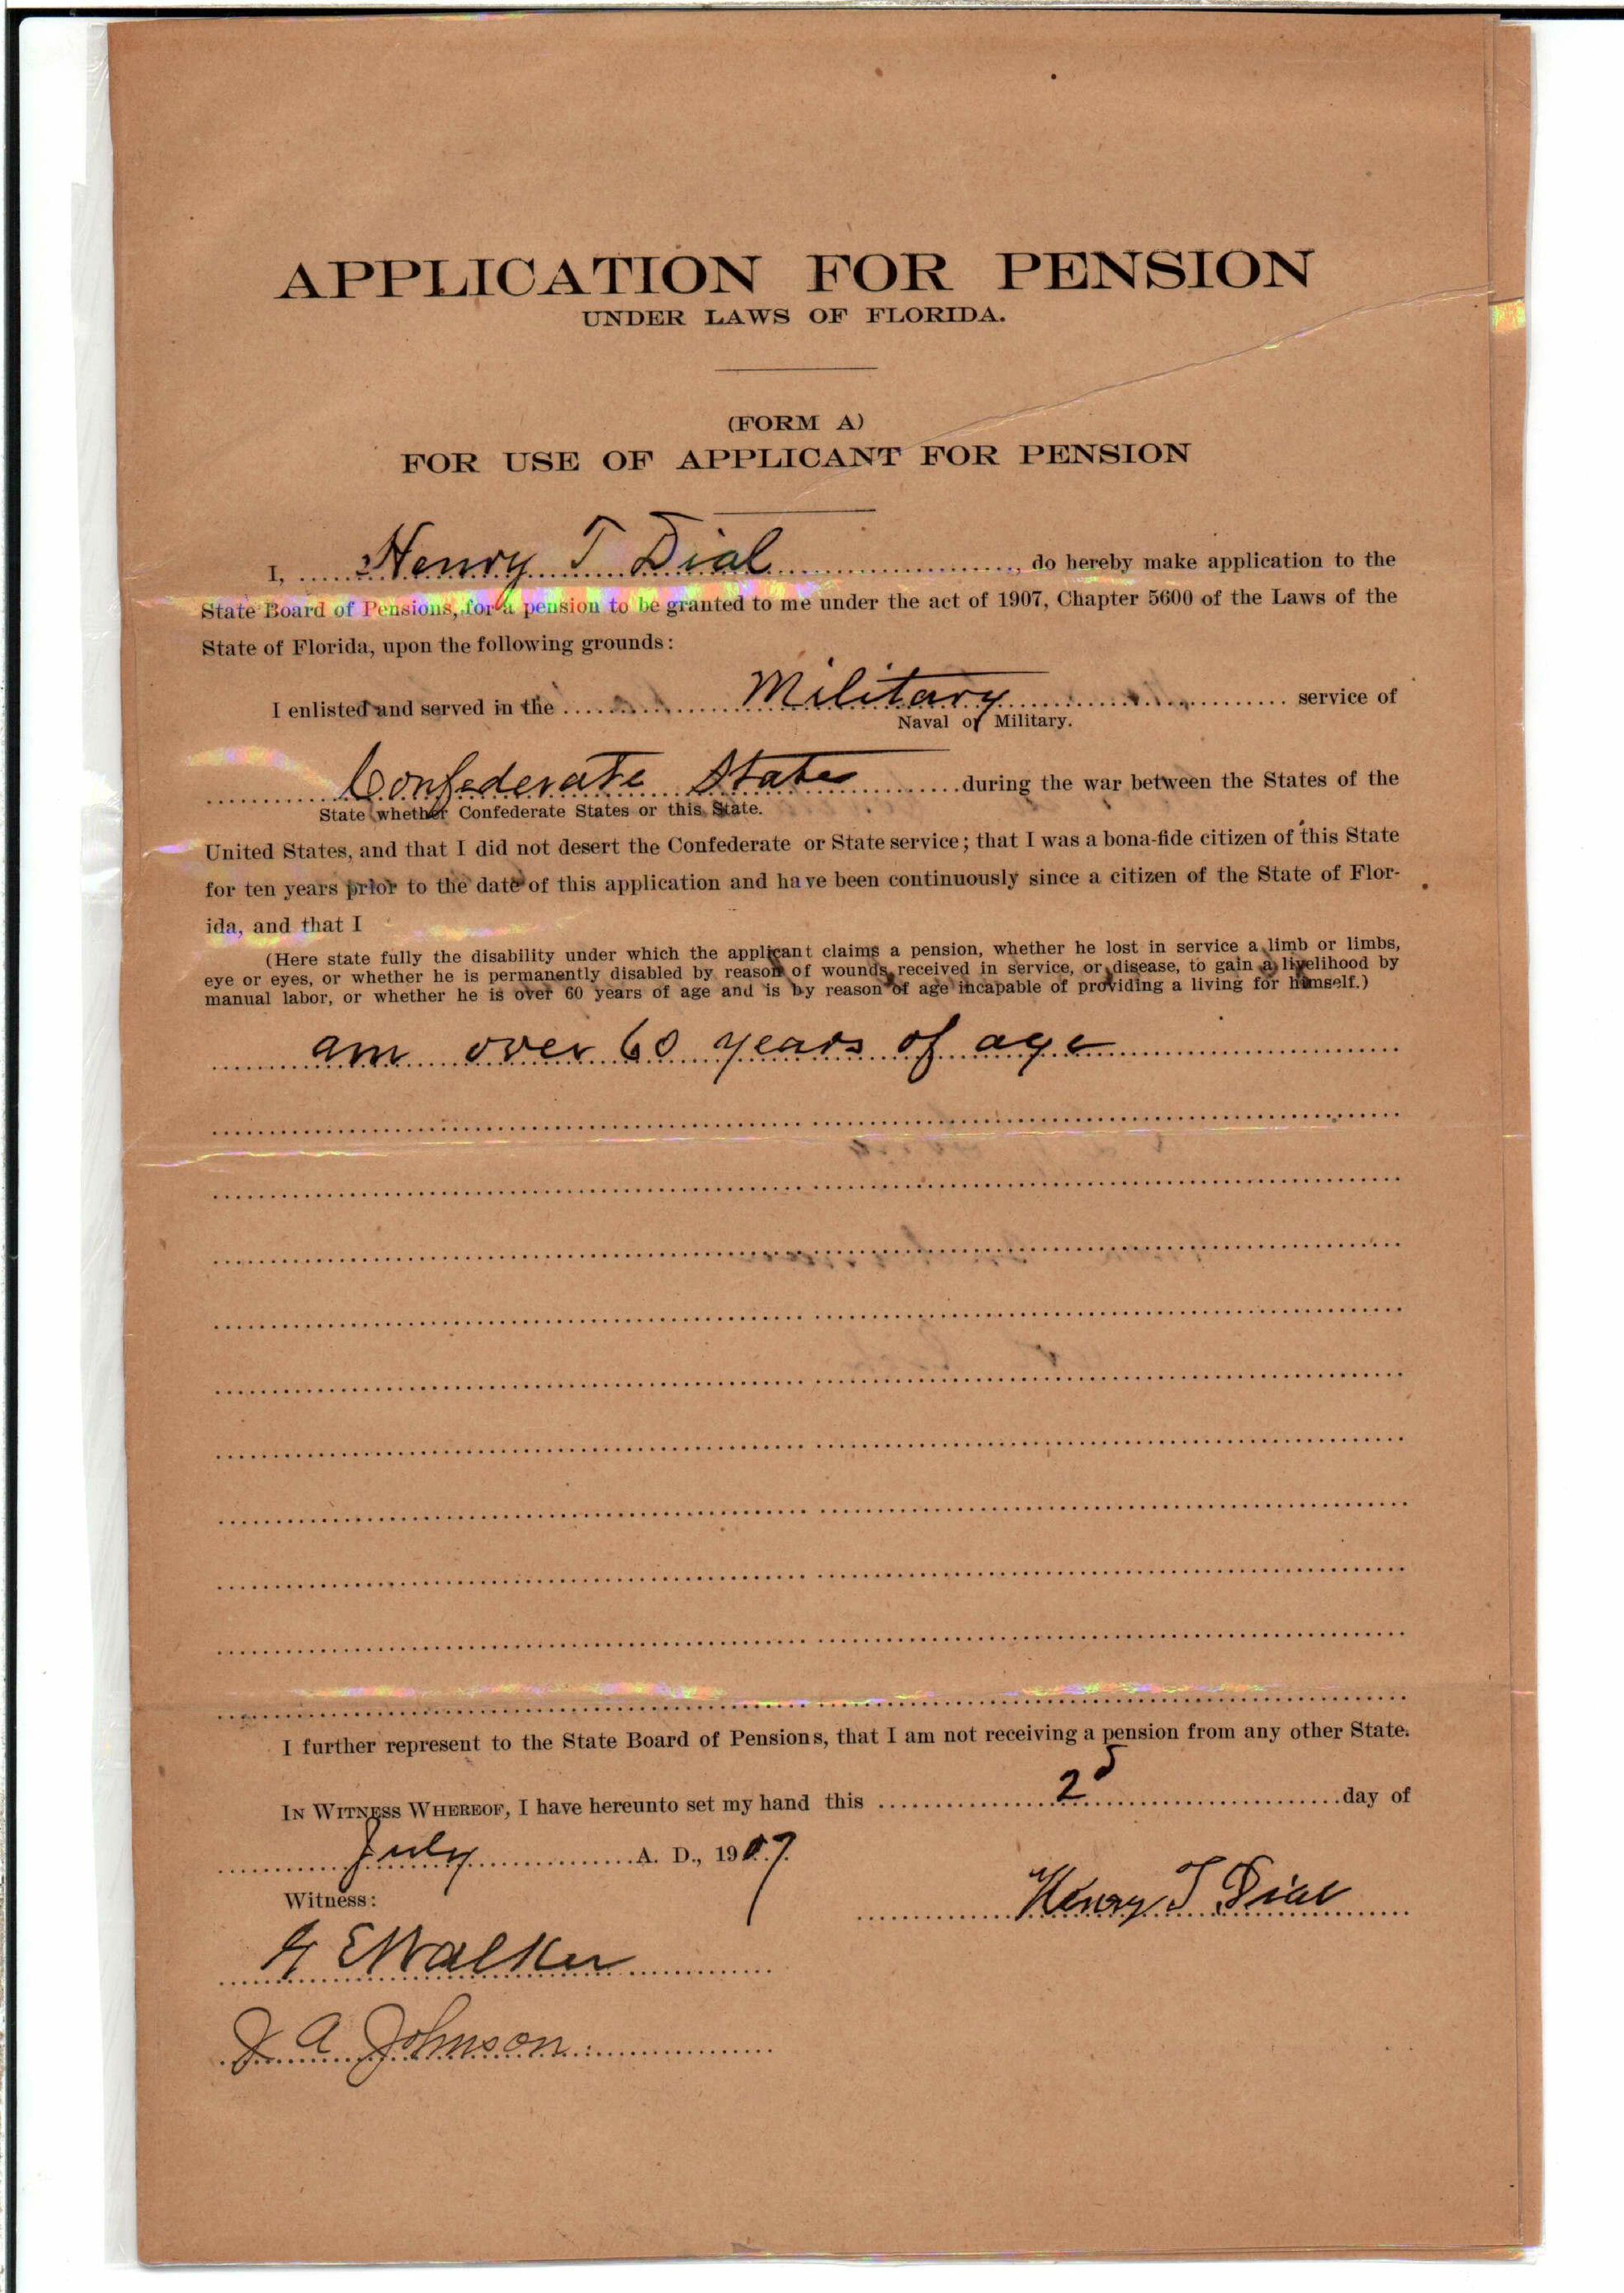 APPLICATION FOR PENSION
UNDER LAWS OF FLORIDA.
(FORM A)
FOR USE OF APPLICANT FOR PENSION
I, Henry T Dial, do hereby make application to the
State Board of Pensions, for a pension to be granted to me under the act of 1907, Chapter 5600 of the Laws of the
State of Florida, upon the following grounds:
I enlisted and served in the Military service of
Naval or Military.
Confederate States during the war between the States of the
State whether Confederate States or this State.
United States, and that I did not desert the Confederate or State service; that I was a bona-fide citizen of this State
for ten years prior to the date of this application and have been continuously since a citizen of the State of Flor-
ida, and that I
(Here state fully the disability under which the applicant claims a pension, whether he lost in service a limb or limbs,
eye or eyes, or whether he is permanently disabled by reason of wounds received in service, or disease, to gain a livelihood by
manual labor, or whether he is over 60 years of age and is by reason of age incapable of providing a living for himself.)
am over 60 years of age
I further represent to the State Board of Pensions, that I am not receiving a pension from any other State.
IN WITNESS WHEREOF, I have hereunto set my hand this 25 day of
July A. D., 1907.
Witness:
Henry T Dial
E Walker
J. A. Johnson